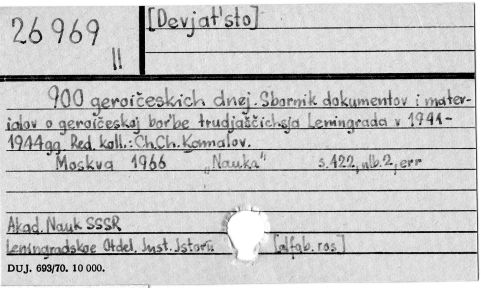 26969
II
[Devjat'sto]
900 geroičeskich dnej. Sbornik dokumentov i mater-
ialov o geroičeskoj bor'be trudjaščichsja Leningrada v 1941-
1944gg. Red. koll.: Ch.Ch. Kamalov.
Moskva 1966 „Nauka" s.422, 2, err
Akad. Nauk SSSR
Leningradskoe Otdel. Inst. Istorii [alfab. ros]
DUJ. 693/70. 10 000.